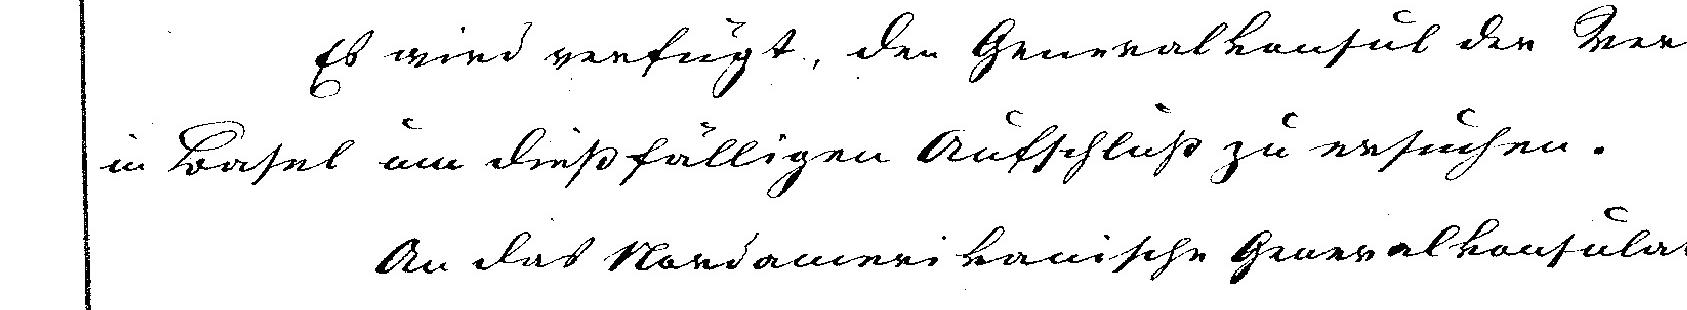 Es wird verfügt, den Generalkonsul der Ver
in Basel um dießfälligen Aufschluß zu ersuchen.
An das Nordamerikanische Generalkonsulat